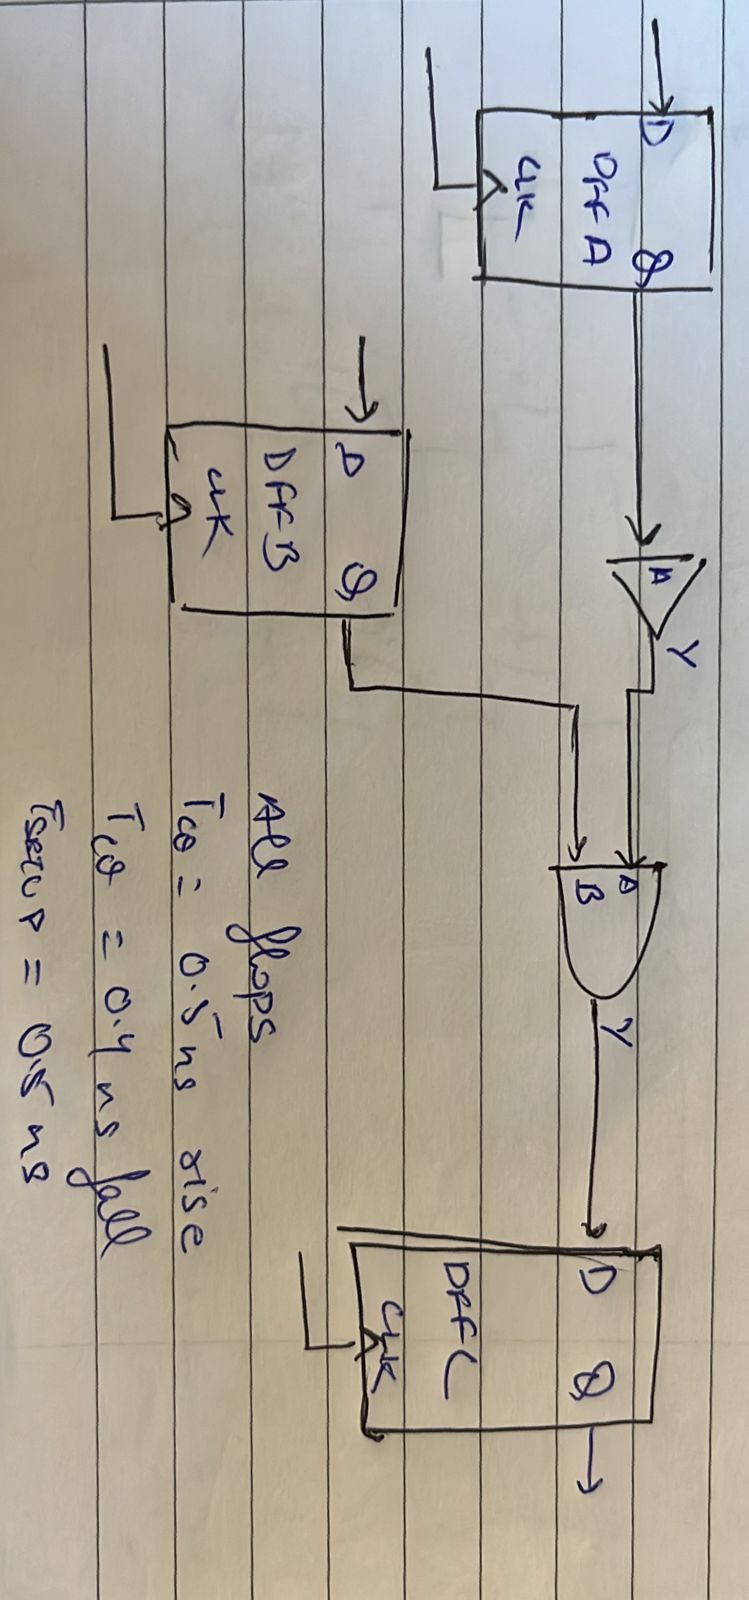 D Q
DFF A
CLK
A Y
D Q
DFF B
CLK
A
B
Y
D Q
DFF C
CLK
All flops
TCQ = 0.5 ns rise
TCQ = 0.4 ns fall
Tsetup = 0.5 ns